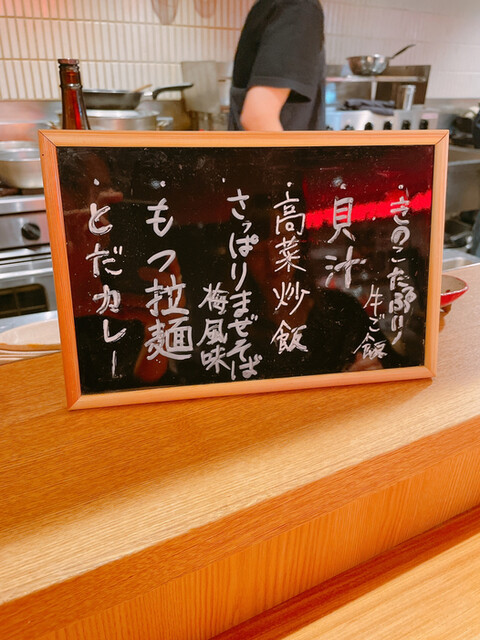 ・きのこたっぷり
牛ご飯
貝汁
・高菜炒飯
・さっぱりまぜそば
梅風味
・もつ拉麺
・とだカレー